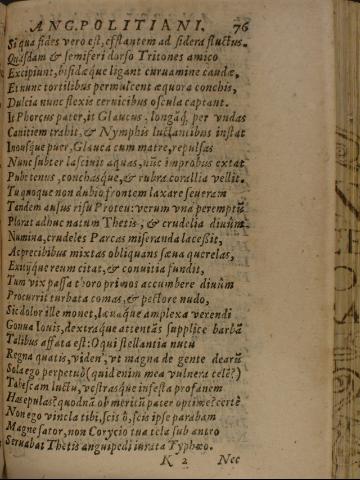 ANG. POLITIANI. 76
Si qua fides vero est, efflantem ad sidera fluctus.
Quasdam & semiferi dorso Tritones amico
Excipiunt, bifidæque ligant curuamine caudæ,
Et nunc tortilibus permulcent æquora conchis,
Dulcia nunc flexis ceruicibus oscula captant.
It Phorcus pater, it Glaucus, longāq; per vndas
Canitiem trahit, & Nymphis luctantibus instat
Inousque puer, Glauca cum matre, repulsas
Nunc subter lasciuit aquas, nūc improbus extat
Pube tenus, conchasque, & rubra corallia vellit.
Tu quoque non dubio frontem laxare seueram
Tandem ausus risu Proteu: verum vna peremptū
Plorat adhuc natum Thetis, & crudelia diuûm
Numina, crudeles Parcas miseranda lacessit,
Ac precibus mixtas obliquans sæua querelas,
Exitÿque reum citat, & conuitia fundit,
Tum vix passa thoro primos accumbere diuûm
Procurrit turbata comas, & pectore nudo,
Sic dolor ille monet, læuaque amplexa verendi
Genua Iouis, dextraque attentās supplice barbā
Talibus affata est: O qui stellantia nutu
Regna quatis, viden', vt magna de gente dearū
Sola ego perpetuò (quid enim mea vulnera celē?)
Tabescam luctu, vestrasque infesta profanem
Has epulas? quodnā ob meritū pater optime? certè
Non ego vincla tibi, scis ô, scis ipse parabam
Magne sator, non Corycio tua tela sub antro
Seruabat Thetis anguipedi iurata Typhæo.
K 2 Nec